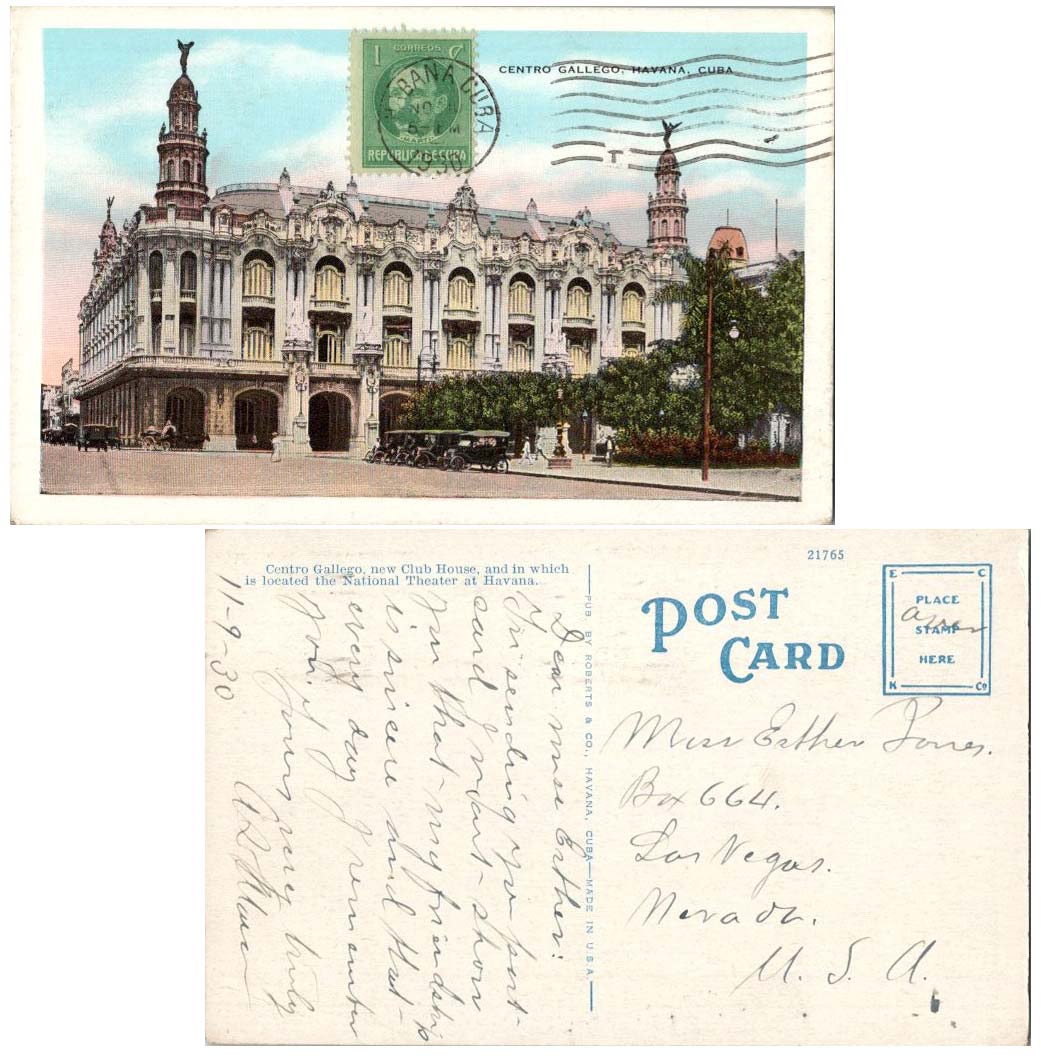 CENTRO GALLEGO, HAVANA, CUBA
1 CORREOS C
REPUBLICA DE CUBA
HABANA CUBA
Centro Gallego, new Club House, and in which
is located the National Theater at Havana.
21765
POST
CARD
E C
PLACE
STAMP
HERE
K Co
PUB. BY ROBERTS & CO., HAVANA, CUBA—MADE IN U.S.A.
11-9-30
Dear miss Esther:
I'm sending you post-
card I want show
you that my friendship
is sincere and that
every day I remember
you.
yours very truly
Miss Esther Jones.
Box 664.
Las Vegas.
Nevada.
U. S. A.